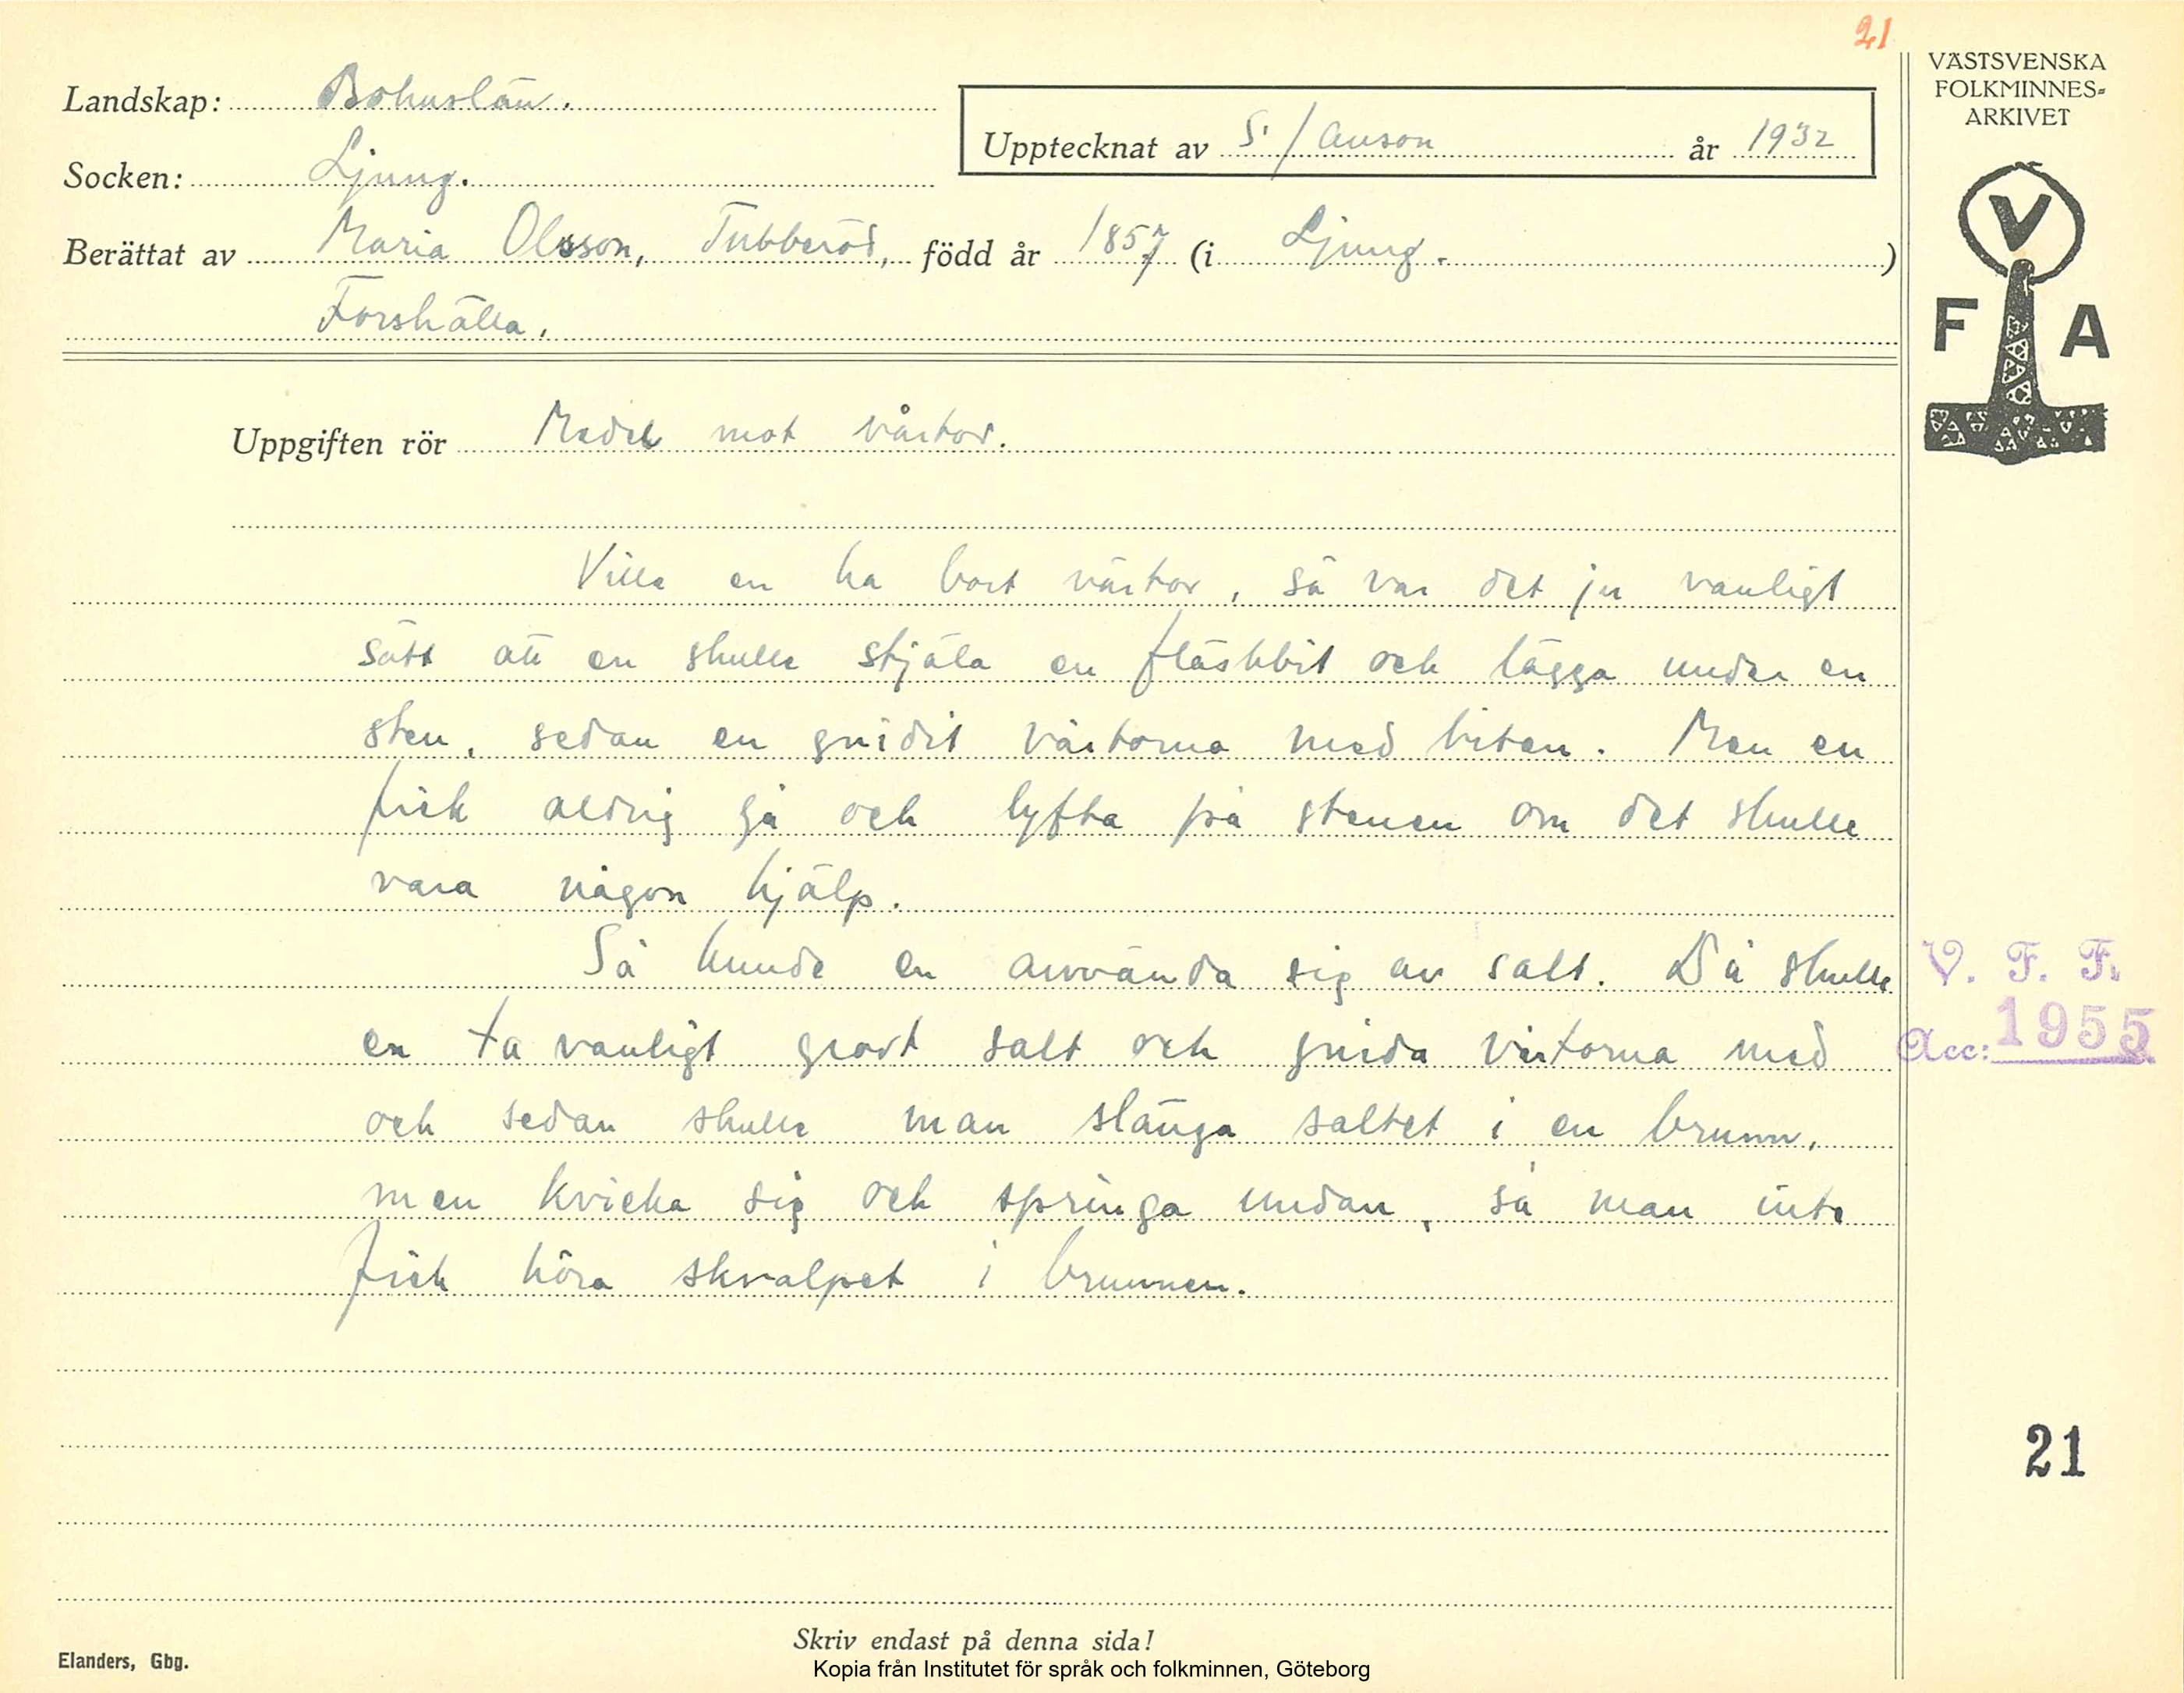 21
VÄSTSVENSKA
FOLKMINNES=
ARKIVET
Landskap: Bohuslän.
Upptecknat av S. Janson år 1932
Socken: Ljung.
Berättat av Maria Olsson, Tubberöd, född år 1857 (i Ljung.)
Forshälla.
V
F A
Uppgiften rör Medel mot vårtor.
Ville en ha bort vårtor, så var det ju vanligt
sätt att en skulle stjäla en fläskbit och lägga under en
sten, sedan en gnidit vårtorna med biten. Men en
fick aldrig gå och lyfta på stenen om det skulle
vara någon hjälp.
Så kunde en använda sig av salt. Då skulle
en ta vanligt grovt salt och gnida vårtorna med
och sedan skulle man slänga saltet i en brunn,
men kvicka sig och springa undan, så man inte
fick höra skvalpet i brunnen.
V. F. F.
Acc: 1955
21
Skriv endast på denna sida!
Elanders, Gbg.
Kopia från Institutet för språk och folkminnen, Göteborg